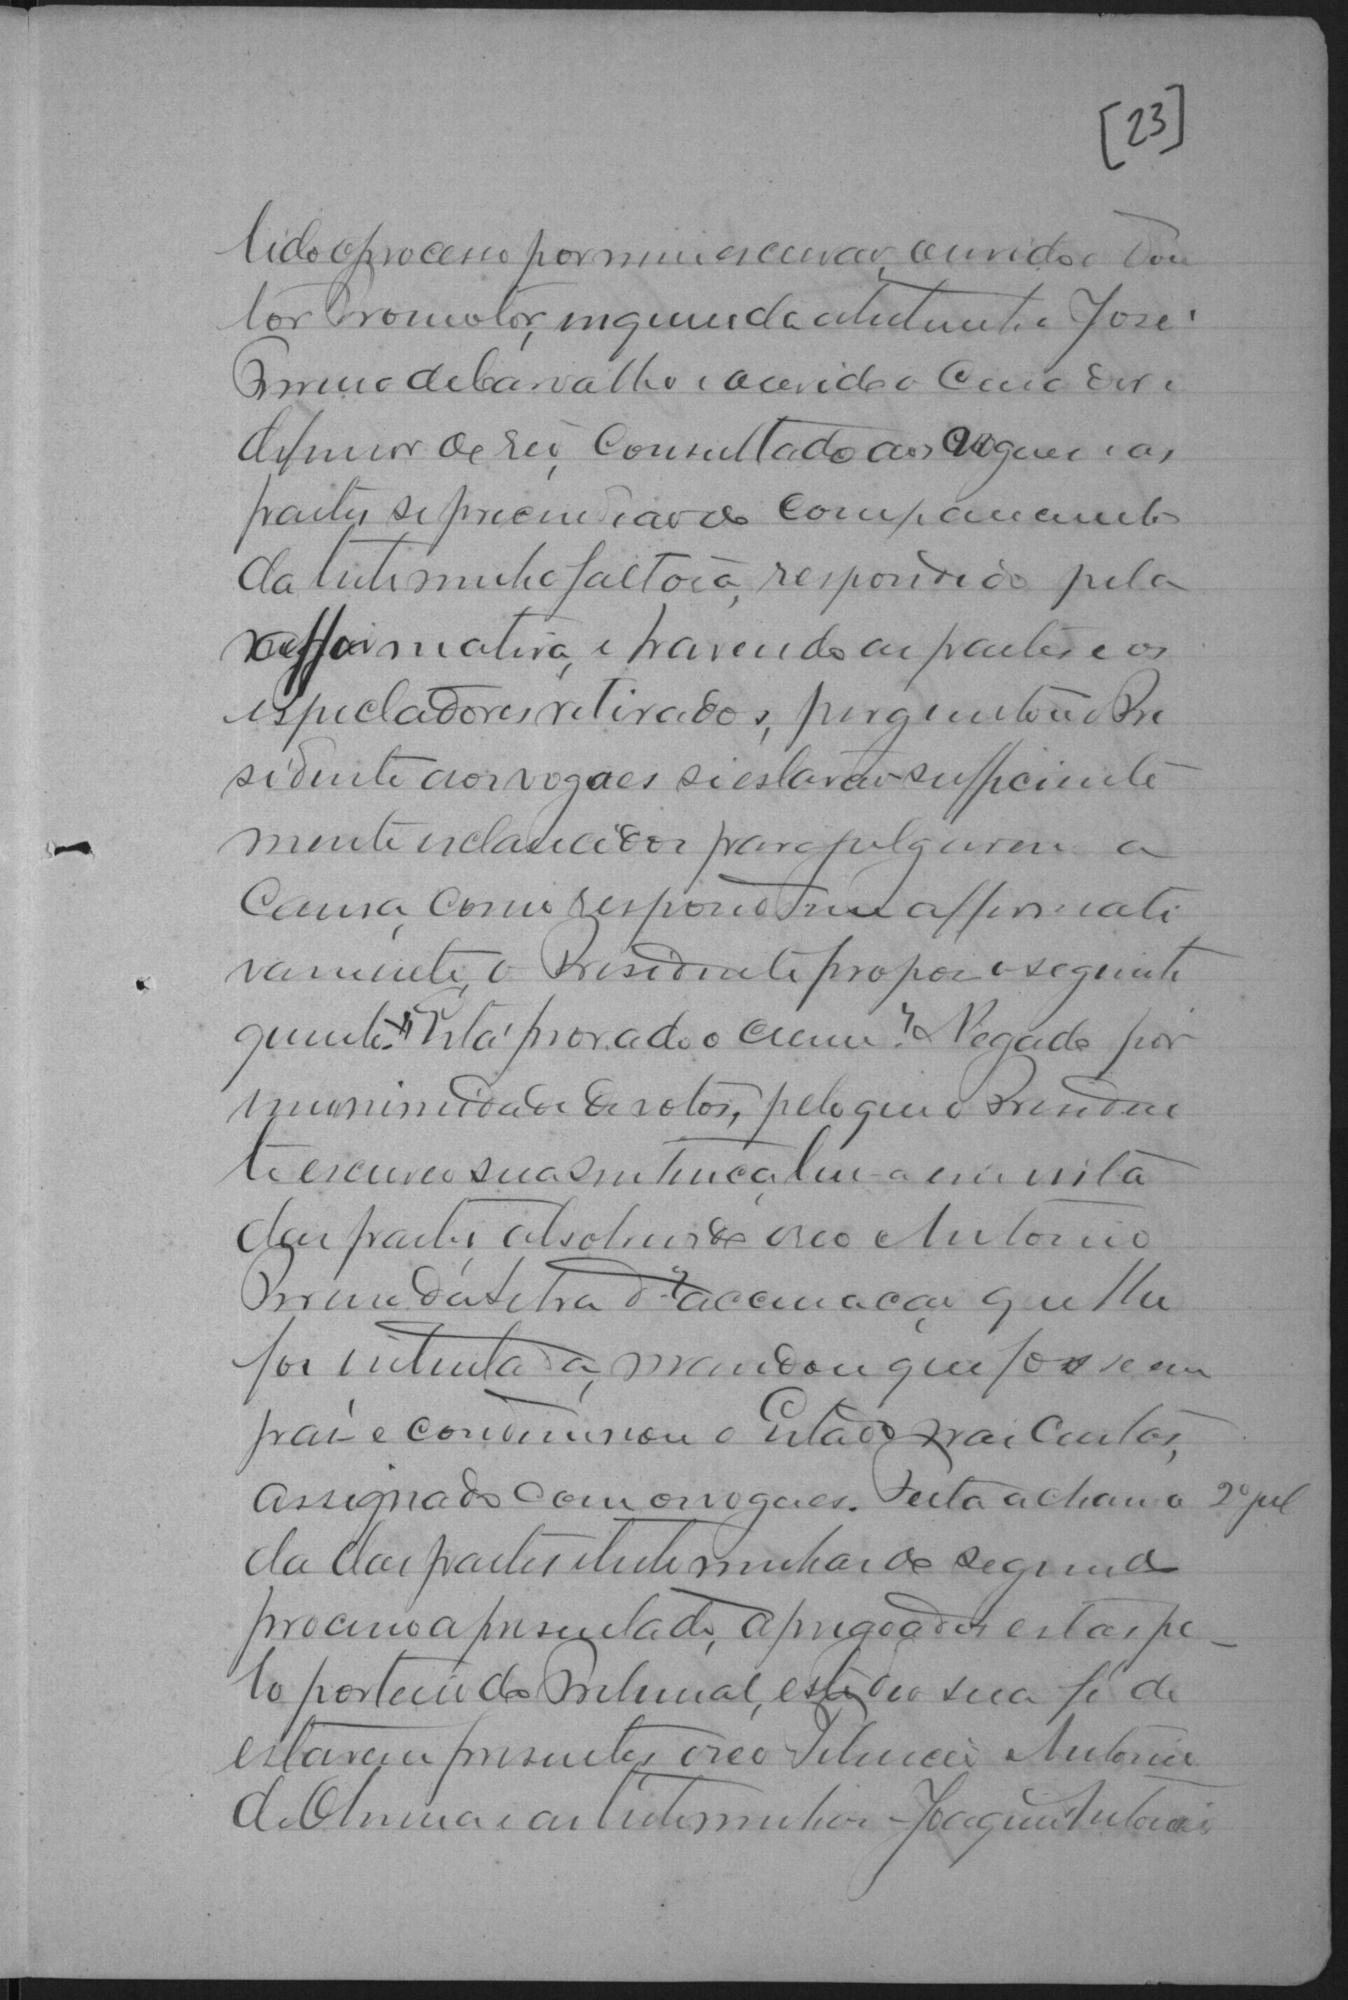 [23]
lido o processo por mim escrivão, ouvido o Dou
tor Promotor, inquerida a testemunha José
Bruno de Carvalho e ouvido o Curador e
defensor do réo, Consultado aos vogaes e as
partes se prescindiao do comparecimento
da testemunha faltosa, respondido pela
affirmativa, e havendo as partes e os
espectadores retirados, perguntou o Pre
sidente aos vogaes si estavão sufficiente
mente esclarecidos para julgarem a
Causa, Como respondessem affirmati
vamente, o Presidente propoz o seguinte
quesito: "Está provado o crime?" Negado por
unanimidade de votos, pelo que o Presiden
te escreveo sua sentença, leu-a em vista
das partes, absolvendo o réo Antonio
Bruno da Silva da accusação que lhe
foi intentada, mandou que fosse em
paz e condemnou o Estado nas Custas,
assignado com os vogaes. Feita a chama 2º jul
da das partes e testemunhas do segundo
processo apresentado, apregoados estas pe-
lo porteiro do Tribunal, este deo sua fé de
estarem presentes o réo Antonio
de Oliveira e as testemunhas Joaquim Antonio